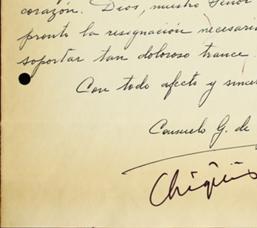 corazón. Dios, nuestro Señor
pronto la resignación necesaria
soportar tan doloroso trance.
Con todo afecto y since
Consuelo G. de